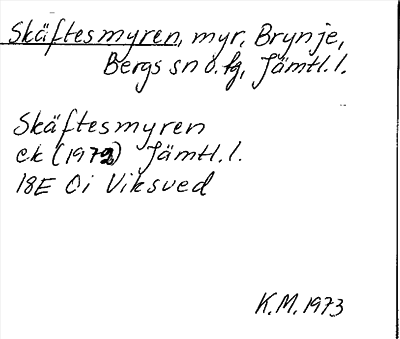 Skäftesmyren, myr, Brynje,
Bergs sn o. hg, Jämtl. l.
Skäftesmyren
ek (1972) Jämtl. l.
18E Oi Viksved
K.M. 1973